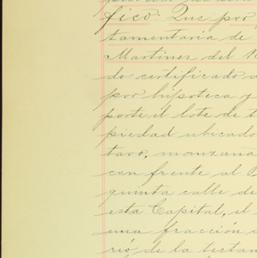 fico. Que por
tamentaria de
Martinez del
do certificado
por hipoteca y
porte el lote de t
piedad ubicado
taro, manzana
con frente al
quinta calle de
esta Capital, el
una fracción
rió de la testam